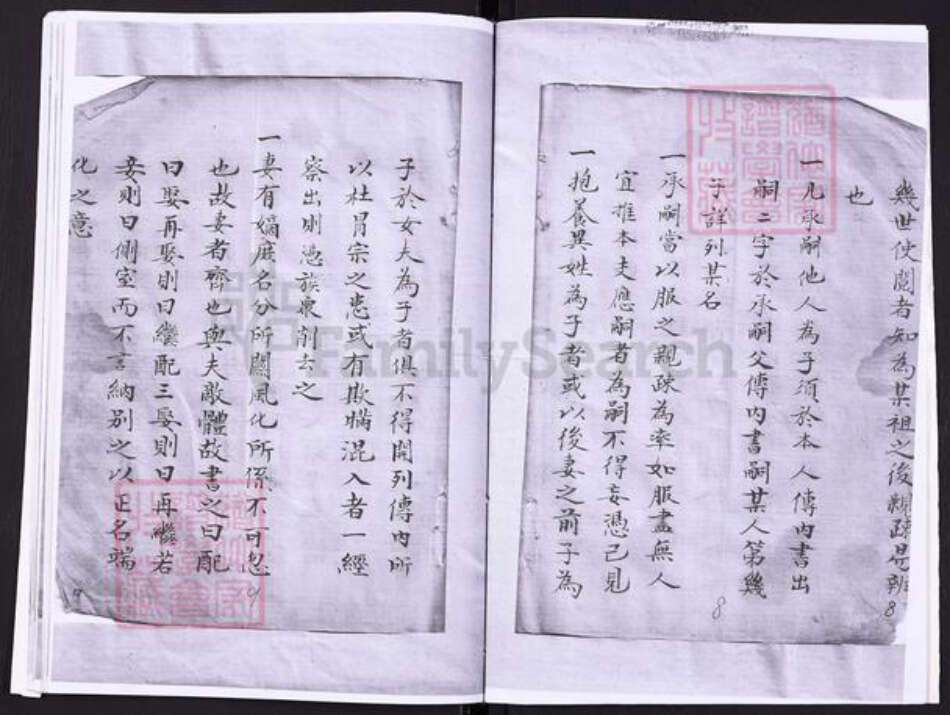 幾世使閱者知為某祖之後親疎易辨
也
一凡承嗣他人為子須於本人傳內書出
嗣二字於承嗣父傳內書嗣某人第幾
子詳列某名
一承嗣當以服之親疎為率如服盡無人
宜推本支應嗣者為嗣不得妄憑己見
一抱養異姓為子者或以後妻之前子為
8
8
子於女夫為子者俱不得開列傳內所
以杜冒宗之患或有欺瞞混入者一經
察出則憑族眾削去之
一妻有嫡庶名分所關風化所係不可忽
也故妻者齊也與夫敵體故書之曰配
曰娶再娶則曰繼配三娶則曰再繼若
妾則曰側室而不言納別之以正名端
化之意
FamilySearch